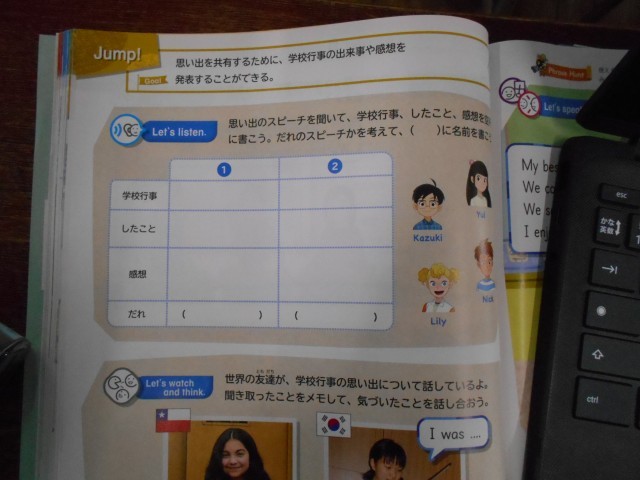 Jump!
Goal
思い出を共有するために、学校行事の出来事や感想を
発表することができる。
Let's listen.
思い出のスピーチを聞いて、学校行事、したこと、感想を
に書こう。だれのスピーチかを考えて、( )に名前を書こ
1 2
学校行事
したこと
感想
だれ ( ) ( )
Kazuki
Yui
Lily
Let's watch
and think.
世界の友達が、学校行事の思い出について話しているよ。
ともだち
聞き取ったことをメモして、気づいたことを話し合おう。
I was ....
Phrase Hunt
Let's
My bes
We
We
I enj
esc
かな
英数
ctrl